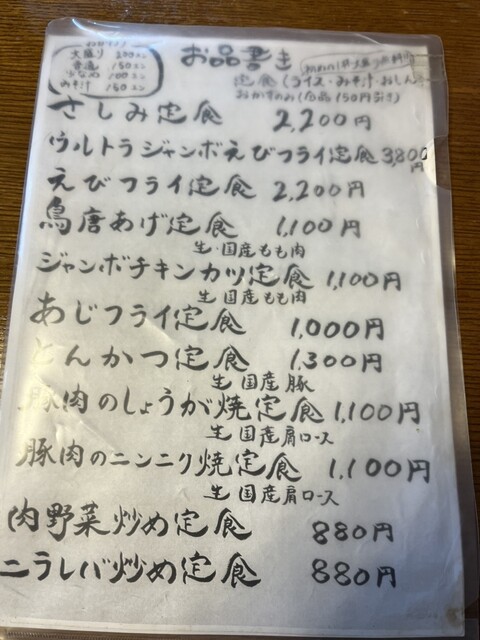 大盛り 200エン
普通 150エン
少なめ 100エン
みそ汁 150エン
お品書き
定食(ライス・みそ汁・おしんこ
おかずのみ(各品150円引き)
さしみ定食 2,200円
ウルトラジャンボえびフライ定食 3,800円
えびフライ定食 2,200円
鳥唐あげ定食 1,100円
生・国産もも肉
ジャンボチキンカツ定食 1,100円
生 国産もも肉
あじフライ定食 1,000円
とんかつ定食 1,300円
生 国産豚
豚肉のしょうが焼定食 1,100円
生 国産肩ロース
豚肉のニンニク焼定食 1,100円
生 国産肩ロース
肉野菜炒め定食 880円
ニラレバ炒め定食 880円